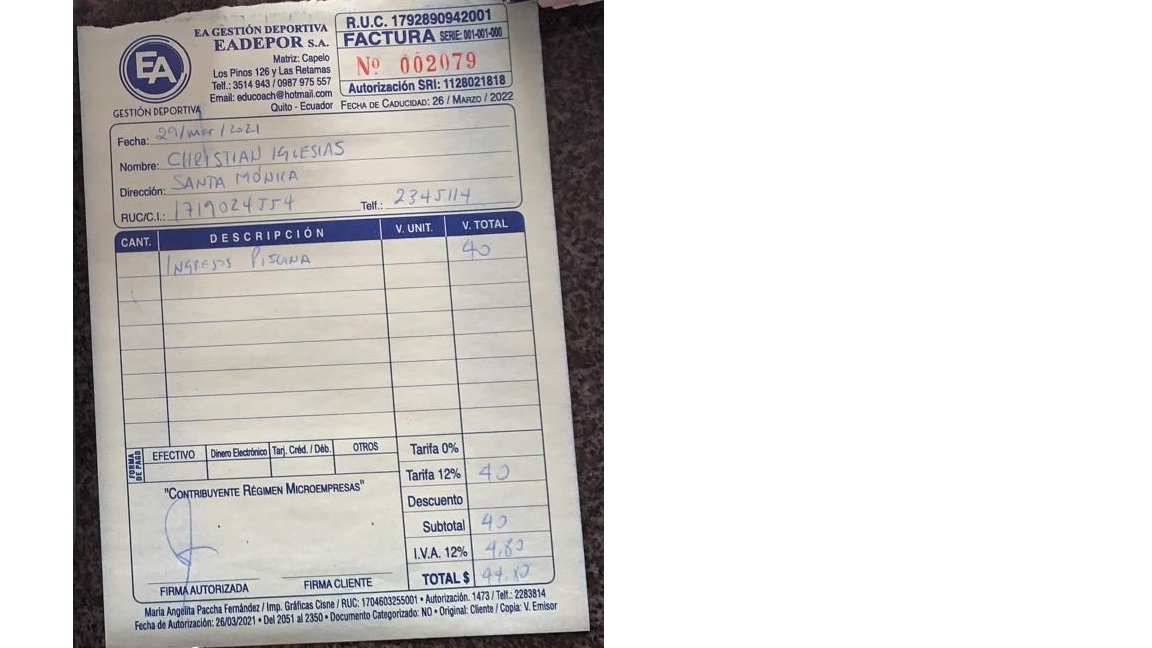 EA GESTIÓN DEPORTIVA
EADEPOR S.A.
Matriz: Capelo
Los Pinos 126 y Las Retamas
Telf.: 3514 943 / 0987 975 557
Email: educoach@hotmail.com
Quito - Ecuador
EA
GESTIÓN DEPORTIVA
R.U.C. 1792890942001
FACTURA SERIE: 001-001-000
Nº 002079
Autorización SRI: 1128021818
FECHA DE CADUCIDAD: 26 / MARZO / 2022
Fecha: 29/mar/2021
Nombre: CHRISTIAN IGLESIAS
Dirección: SANTA MÓNICA
RUC/C.I.: 1719024554 Telf.: 2345114
CANT. DESCRIPCIÓN V. UNIT. V. TOTAL
INGRESOS PISCINA 40
FORMA DE PAGO EFECTIVO Dinero Electrónico Tarj. Créd. / Déb. OTROS
Tarifa 0%
Tarifa 12% 40
Descuento
Subtotal 40
I.V.A. 12% 4,80
TOTAL $ 44,80
"CONTRIBUYENTE RÉGIMEN MICROEMPRESAS"
FIRMA AUTORIZADA FIRMA CLIENTE
María Angelita Paccha Fernández / Imp. Gráficas Cisne / RUC: 1704603255001 • Autorización. 1473 / Telf.: 2283814
Fecha de Autorización: 26/03/2021 • Del 2051 al 2350 • Documento Categorizado: NO • Original: Cliente / Copia: V. Emisor